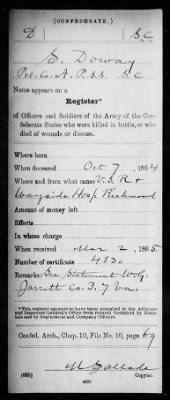 (CONFEDERATE.)
D S.C.
S. Doway
Pvt. Co. A. P.S.S. S.C.
Name appears on a
Register*
of Officers and Soldiers of the Army of the Con-
federate States who were killed in battle, or who
died of wounds or disease.
Where born
When deceased Oct 7, 1864
Where and from what cause
Wayside Hosp. Richmond
Amount of money left
Effects
In whose charge
When received Mar 2, 1865
Number of certificate 4830
Remarks: See Statement W.G.
Jarrett Co. D. 7 Va.
*This register appears to have been compiled in the Adjutant
and Inspector General's Office from returns furnished by Hospi-
tals and by Regimental and Company Officers.
Confed. Arch., Chap. 10, File No. 10, page 69
Copyist.